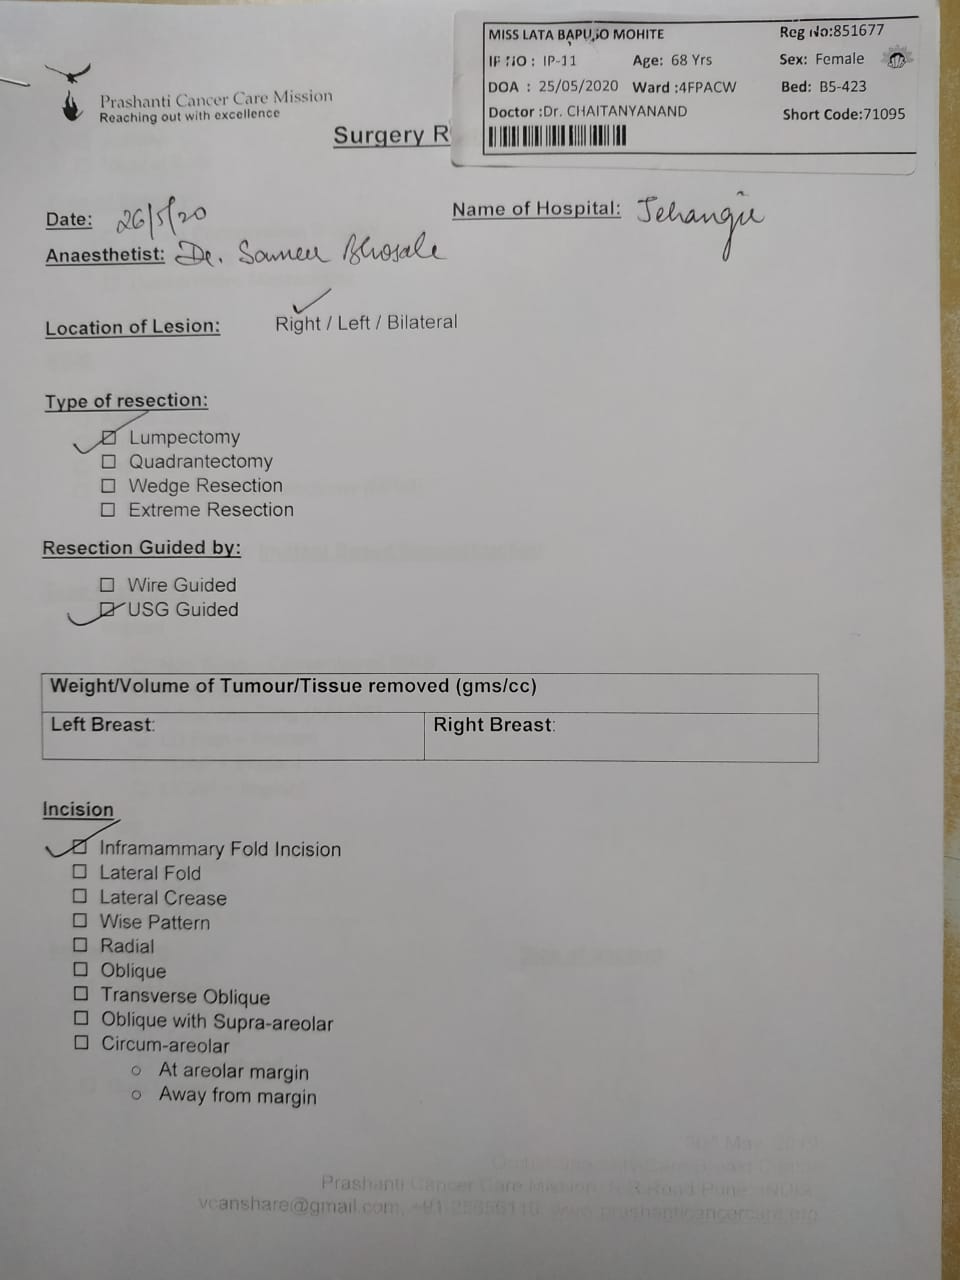 MISS LATA BAPUSO MOHITE
Reg No:851677
IP NO : IP-11 Age: 68 Yrs Sex: Female
DOA : 25/05/2020 Ward :4FPACW Bed: B5-423
Doctor :Dr. CHAITANYANAND Short Code:71095
Prashanti Cancer Care Mission
Reaching out with excellence
Surgery R
Date: 26/5/20
Name of Hospital: Jehangir
Anaesthetist: Dr. Sameer Bhosale
Location of Lesion: Right / Left / Bilateral
Type of resection:
Lumpectomy
Quadrantectomy
Wedge Resection
Extreme Resection
Resection Guided by:
Wire Guided
USG Guided
Weight/Volume of Tumour/Tissue removed (gms/cc)
Left Breast: Right Breast:
Incision
Inframammary Fold Incision
Lateral Fold
Lateral Crease
Wise Pattern
Radial
Oblique
Transverse Oblique
Oblique with Supra-areolar
Circum-areolar
At areolar margin
Away from margin
Prashanti Cancer Care Mission
vcanshare@gmail.com, www.prashanticancercare.org